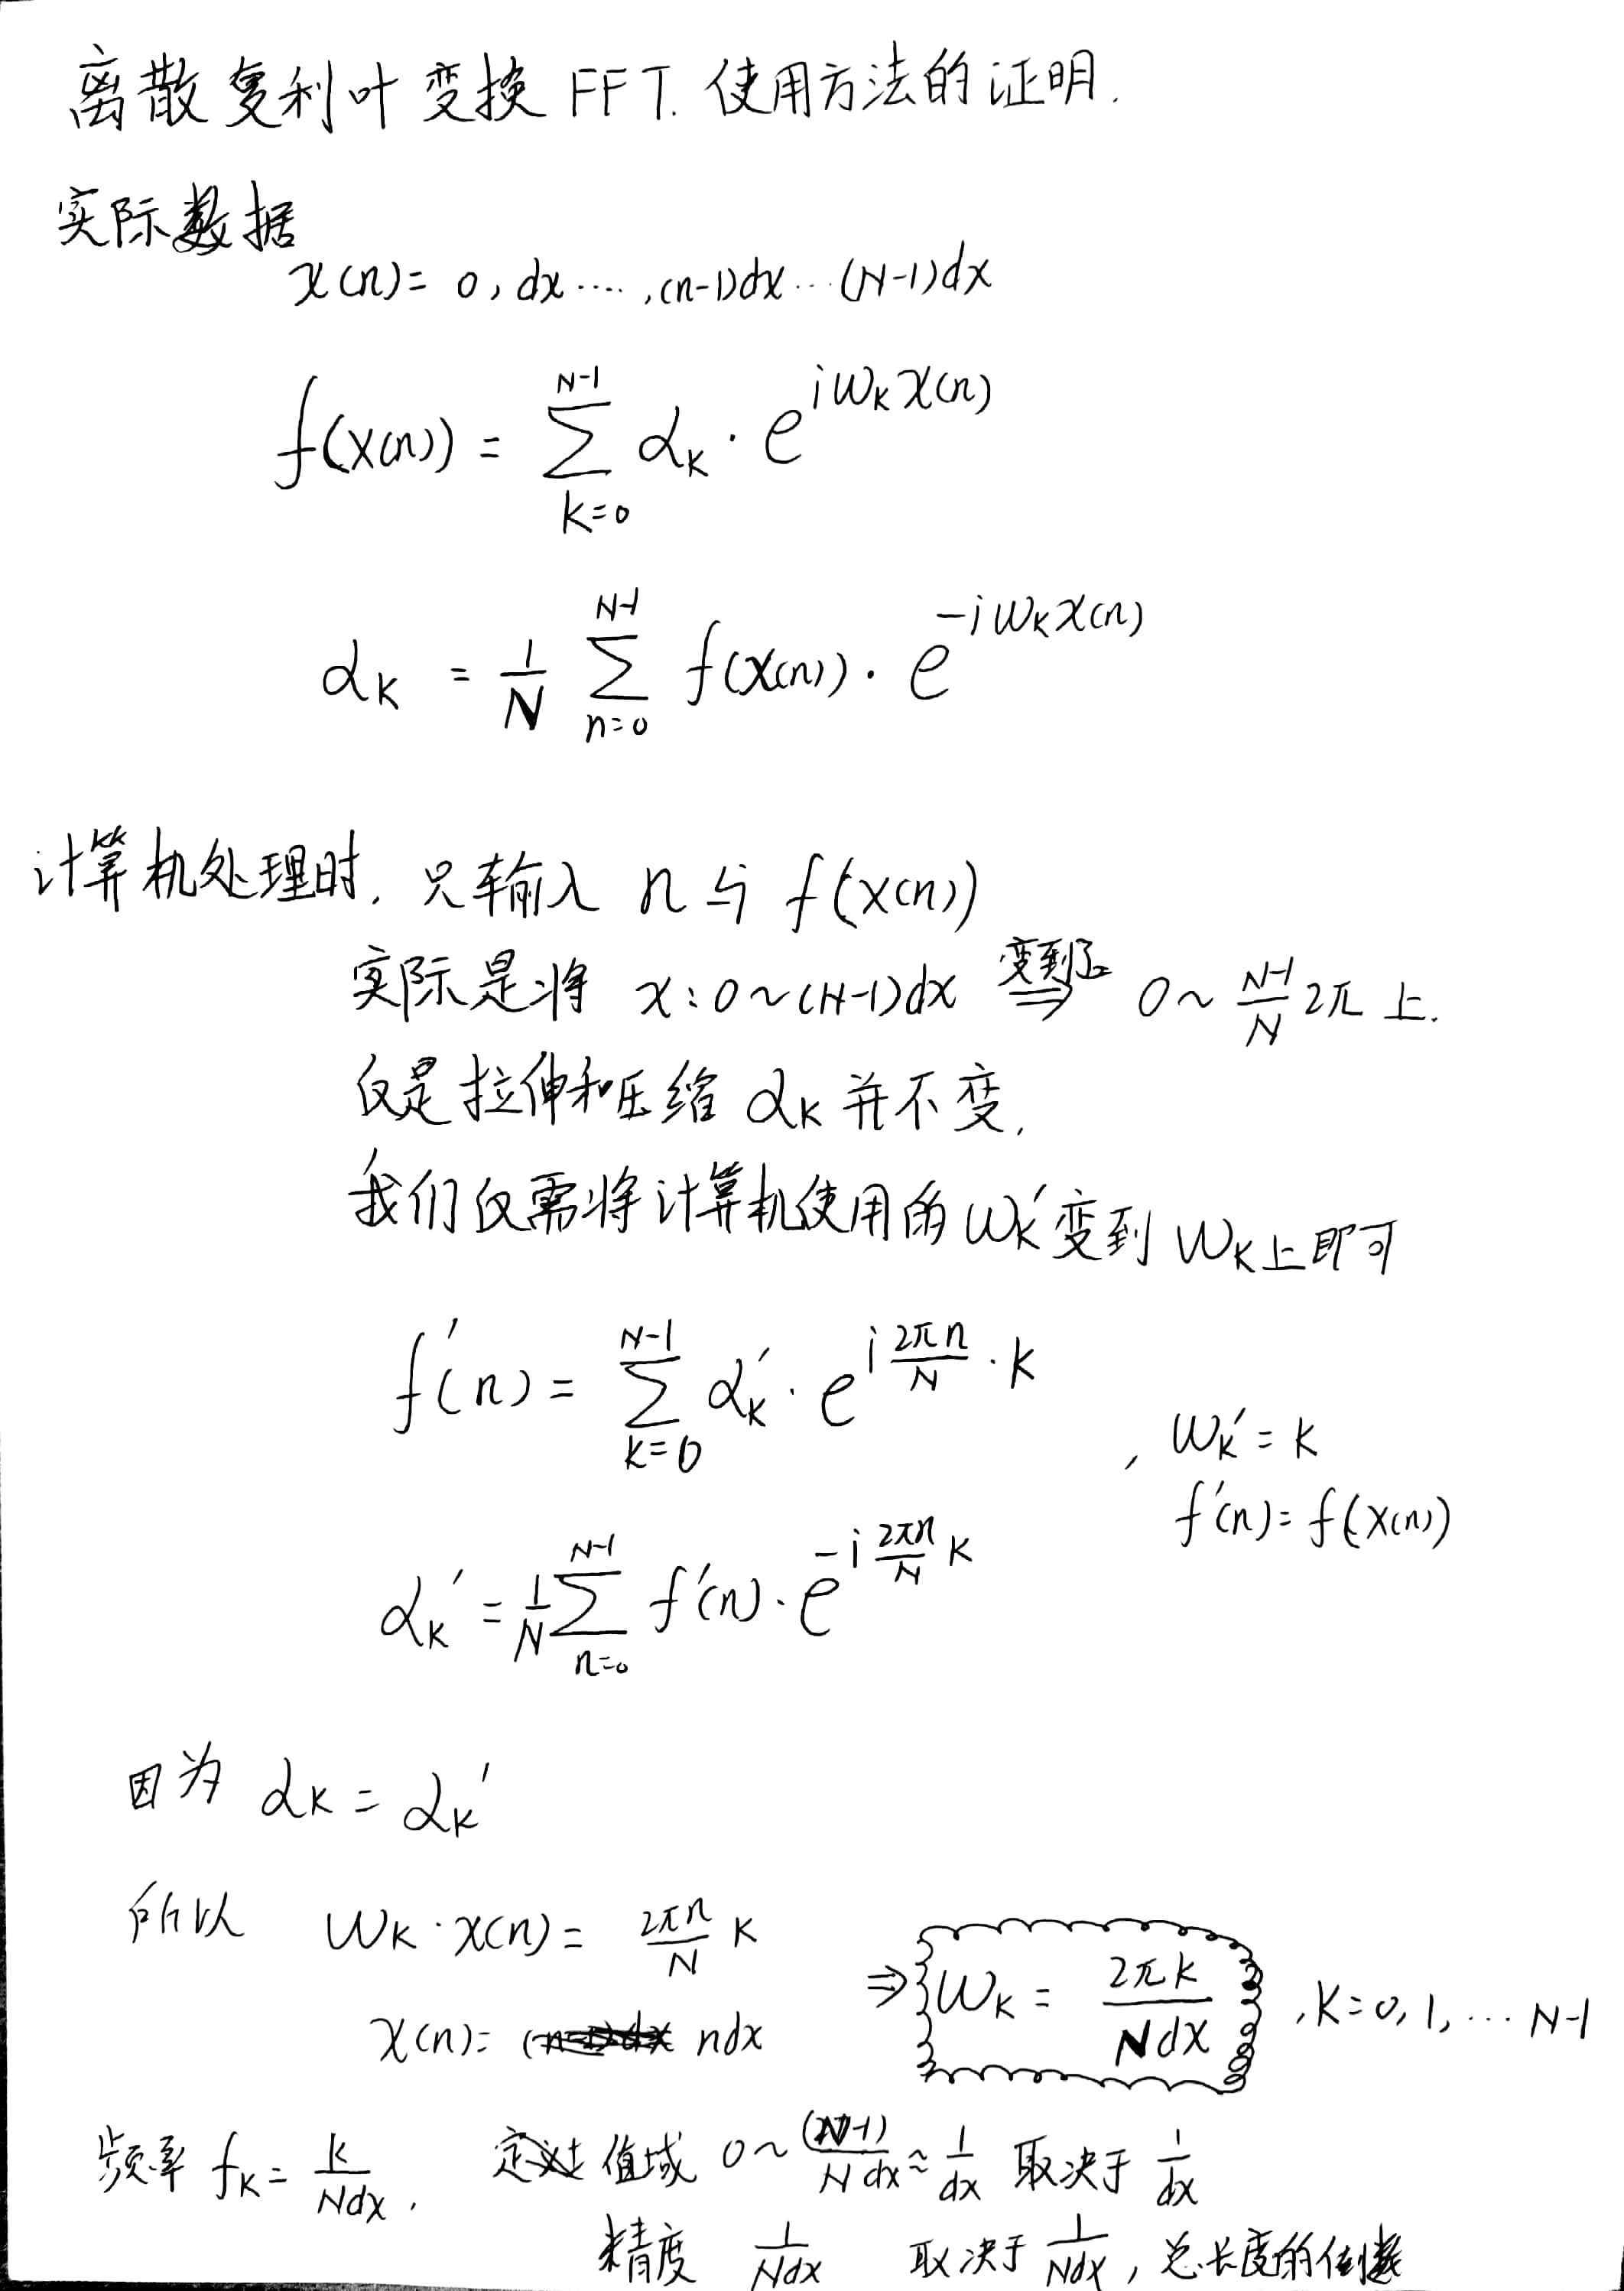 离散复利叶变换 FFT. 使用方法的证明.
实际数据
x(n)= 0, dx ····, (n-1)dx ··· (N-1)dx
f(x(n)) = \sum_{k=0}^{N-1} α_k · e^{iω_k x(n)}
α_k = \frac{1}{N} \sum_{n=0}^{N-1} f(x(n)) · e^{-iω_k x(n)}
计算机处理时, 只输入 n 与 f(x(n))
实际是将 x: 0~(N-1)dx 变到了 ⇒ 0~ \frac{N-1}{N} 2π 上.
仅是拉伸和压缩 α_k 并不变,
我们仅需将计算机使用的 ω_k' 变到 ω_k 上即可
f'(n) = \sum_{k=0}^{N-1} α_k' · e^{i \frac{2πn}{N} · k}
, ω_k' = k
f'(n) = f(x(n))
α_k' = \frac{1}{N} \sum_{n=0}^{N-1} f'(n) · e^{-i \frac{2πn}{N} k}
因为 α_k = α_k'
所以 ω_k · x(n) = \frac{2πn}{N} k
⇒ ω_k = \frac{2πk}{Ndx} , k=0, 1, ··· N-1
x(n) = ndx
频率 f_k = \frac{k}{Ndx} , 值域 0~ \frac{(N-1)}{Ndx} ≈ \frac{1}{dx} 取决于 \frac{1}{dx}
精度 \frac{1}{Ndx} 取决于 \frac{1}{Ndx} , 总长度的倒数